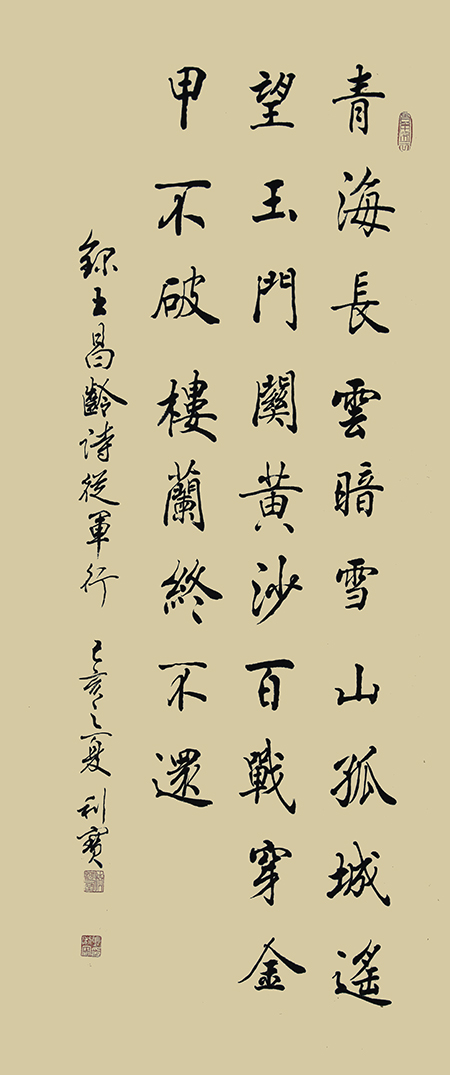 青海長雲暗雪山孤城遙
望玉門關黃沙百戰穿金
甲不破樓蘭終不還
錄王昌齡詩從軍行 己亥之夏 利寶